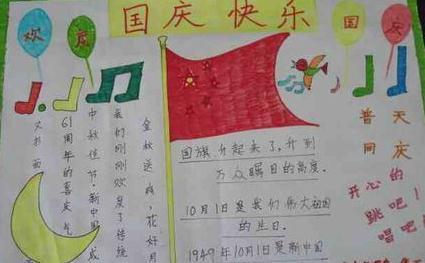 国庆快乐
欢度
国庆
金秋送爽,花好月
我们刚刚欢度了传统
中秋佳节·新中国成
61周年的喜庆气
又扑面
国旗升起来了,升到
万众瞩目的高度。
10月1日是我们伟大祖国
的生日。
1949年10月1日是新中国
普天
同庆
开心的
跳吧!
唱吧!